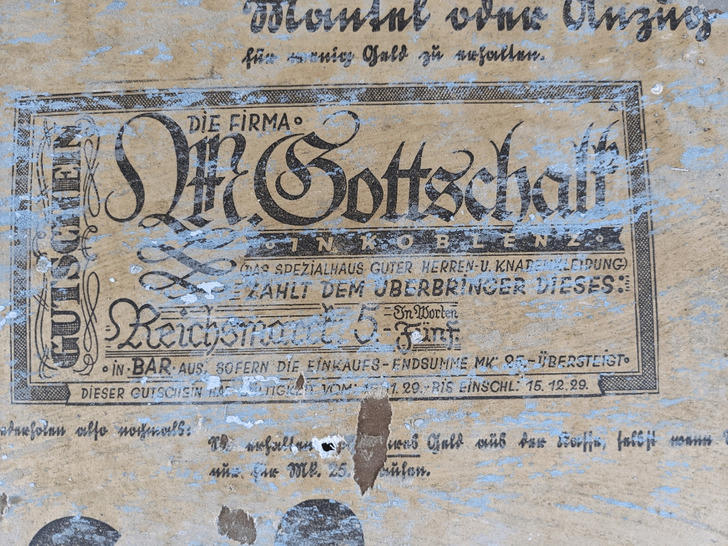 Mantel oder Anzug
für wenig Geld zu erhalten.
GUTSCHEIN
DIE FIRMA
M. Gottschalk
IN KOBLENZ
(DAS SPEZIALHAUS GUTER HERREN- U. KNABENKLEIDUNG)
ZAHLT DEM ÜBERBRINGER DIESES:
Reichsmark 5.- In Worten
Fünf
IN BAR AUS, SOFERN DIE EINKAUFS-ENDSUMME MK. 25.- ÜBERSTEIGT
DIESER GUTSCHEIN HAT GÜLTIGKEIT VOM 11. 29.- BIS EINSCHL: 15. 12. 29.
wiederholen also nochmals:
erhalten bares Geld aus der Kasse, selbst wenn
nur für Mk. 25. kaufen.